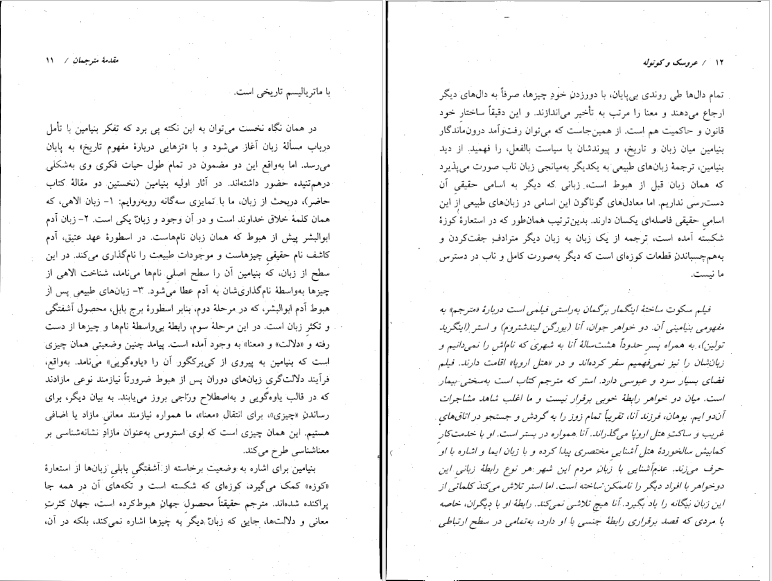 مقدمهٔ مترجمان / ۱۱
با ماتریالیسم تاریخی است.
در همان نگاه نخست می‌توان به این نکته پی برد که تفکر بنیامین با تأمل
درباب مسألهٔ زبان آغاز می‌شود و با «تزهایی دربارهٔ مفهوم تاریخ» به پایان
می‌رسد. اما به‌واقع این دو مضمون در تمام طول حیات فکری وی به‌شکلی
درهم‌تنیده حضور داشته‌اند. در آثار اولیه بنیامین (نخستین دو مقالهٔ کتاب
حاضر)، دربحث از زبان، ما با تمایزی سه‌گانه روبه‌روایم: ۱- زبان الاهی، که
همان کلمهٔ خلاق خداوند است و در آن وجود و زبان یکی است. ۲- زبان آدم
ابوالبشر پیش از هبوط که همان زبان نام‌هاست. در اسطورهٔ عهد عتیق، آدم
کاشف نام حقیقی چیزهاست و موجودات طبیعت را نام‌گذاری می‌کند. در این
سطح از زبان، که بنیامین آن را سطح اصلی نام‌ها می‌نامد، شناخت الاهی از
چیزها به‌واسطهٔ نام‌گذاری‌شان به آدم عطا می‌شود. ۳- زبان‌های طبیعی پس از
هبوط آدم ابوالبشر، که در مرحلهٔ دوم، بنابر اسطورهٔ برج بابل، محصول آشفتگی
و تکثر زبان است. در این مرحلهٔ سوم، رابطهٔ بی‌واسطهٔ نام‌ها و چیزها از دست
رفته و «دلالت» و «معنا» به وجود آمده است. پیامد چنین وضعیتی همان چیزی
است که بنیامین به پیروی از کی‌یرکگور آن را «یاوه‌گویی» می‌نامد. به‌واقع،
فرآیند دلالت‌گری زبان‌های دوران پس از هبوط ضرورتاً نیازمند نوعی مازادند
که در قالب یاوه‌گویی و به‌اصطلاح ورّاجی بروز می‌یابند. به بیان دیگر، برای
رساندن «چیزی»، برای انتقال «معنا» ما همواره نیازمند معانی مازاد یا اضافی
هستیم. این همان چیزی است که لوی استروس به‌عنوان مازاد نشانه‌شناسی بر
معناشناسی طرح می‌کند.
بنیامین برای اشاره به وضعیت برخاسته از آشفتگی بابلی زبان‌ها از استعارهٔ
«کوزه» کمک می‌گیرد، کوزه‌ای که شکسته است و تکه‌های آن در همه جا
پراکنده شده‌اند. مترجم حقیقتاً محصول جهان هبوط‌کرده است، جهان کثرت
معانی و دلالت‌ها، جایی که زبان دیگر به چیزها اشاره نمی‌کند، بلکه در آن،
۱۲ / عروسک و کوتوله
تمام دال‌ها طی روندی بی‌پایان، با دورزدن خود چیزها، صرفاً به دال‌های دیگر
ارجاع می‌دهند و معنا را مرتب به تأخیر می‌اندازند. و این دقیقاً ساختار خود
قانون و حاکمیت هم است. از همین‌جاست که می‌توان رفت‌وآمد درون‌ماندگار
بنیامین میان زبان و تاریخ، و پیوندشان با سیاست بالفعل، را فهمید. از دید
بنیامین، ترجمهٔ زبان‌های طبیعی به یکدیگر به‌میانجی زبان ناب صورت می‌پذیرد
که همان زبان قبل از هبوط است، زبانی که دیگر به اسامی حقیقی آن
دست‌رسی نداریم. اما معادل‌های گوناگون این اسامی در زبان‌های طبیعی از این
اسامی حقیقی فاصله‌ای یکسان دارند. بدین‌ترتیب همان‌طور که در استعارهٔ کوزهٔ
شکسته آمده است، ترجمه از یک زبان به زبان دیگر مترادف جفت‌کردن و
به‌هم‌چسباندن قطعات کوزه‌ای است که دیگر به‌صورت کامل و ناب در دسترس
ما نیست.
فیلم سکوت ساختهٔ اینگمار برگمان به‌راستی فیلمی است دربارهٔ «مترجم» به
مفهومی بنیامینی آن. دو خواهر جوان، آنا (یورگن لیندشتروم) و استر (اینگرید
تولین)، به همراه پسر حدوداً هشت‌سالهٔ آنا به شهری که نام‌اش را نمی‌دانیم و
زبان‌شان را نیز نمی‌فهمیم سفر کرده‌اند و در «هتل اروپا» اقامت دارند. فیلم
فضای بسیار سرد و عبوسی دارد. استر که مترجم کتاب است به‌سختی بیمار
است. میان دو خواهر رابطهٔ خوبی برقرار نیست و ما اغلب شاهد مشاجرات
آن‌دو ایم. یوهان، فرزند آنا، تقریباً تمام روز را به گردش و جستجو در اتاق‌های
غریب و ساکت هتل اروپا می‌گذراند. آنا همواره در بستر است. او با خدمت‌کار
کمابیش سالخوردهٔ هتل آشنایی مختصری پیدا کرده و با زبان ایما و اشاره با او
حرف می‌زند. عدم‌آشنایی با زبان مردم این شهر هر نوع رابطهٔ زبانی این
دوخواهر با افراد دیگر را ناممکن ساخته است. اما استر تلاش می‌کند کلماتی از
این زبان بیگانه را یاد بگیرد. آنا هیچ تلاشی نمی‌کند. رابطهٔ او با دیگران، خاصه
با مردی که قصد برقراری رابطهٔ جنسی با او دارد، به‌تمامی در سطح ارتباطی